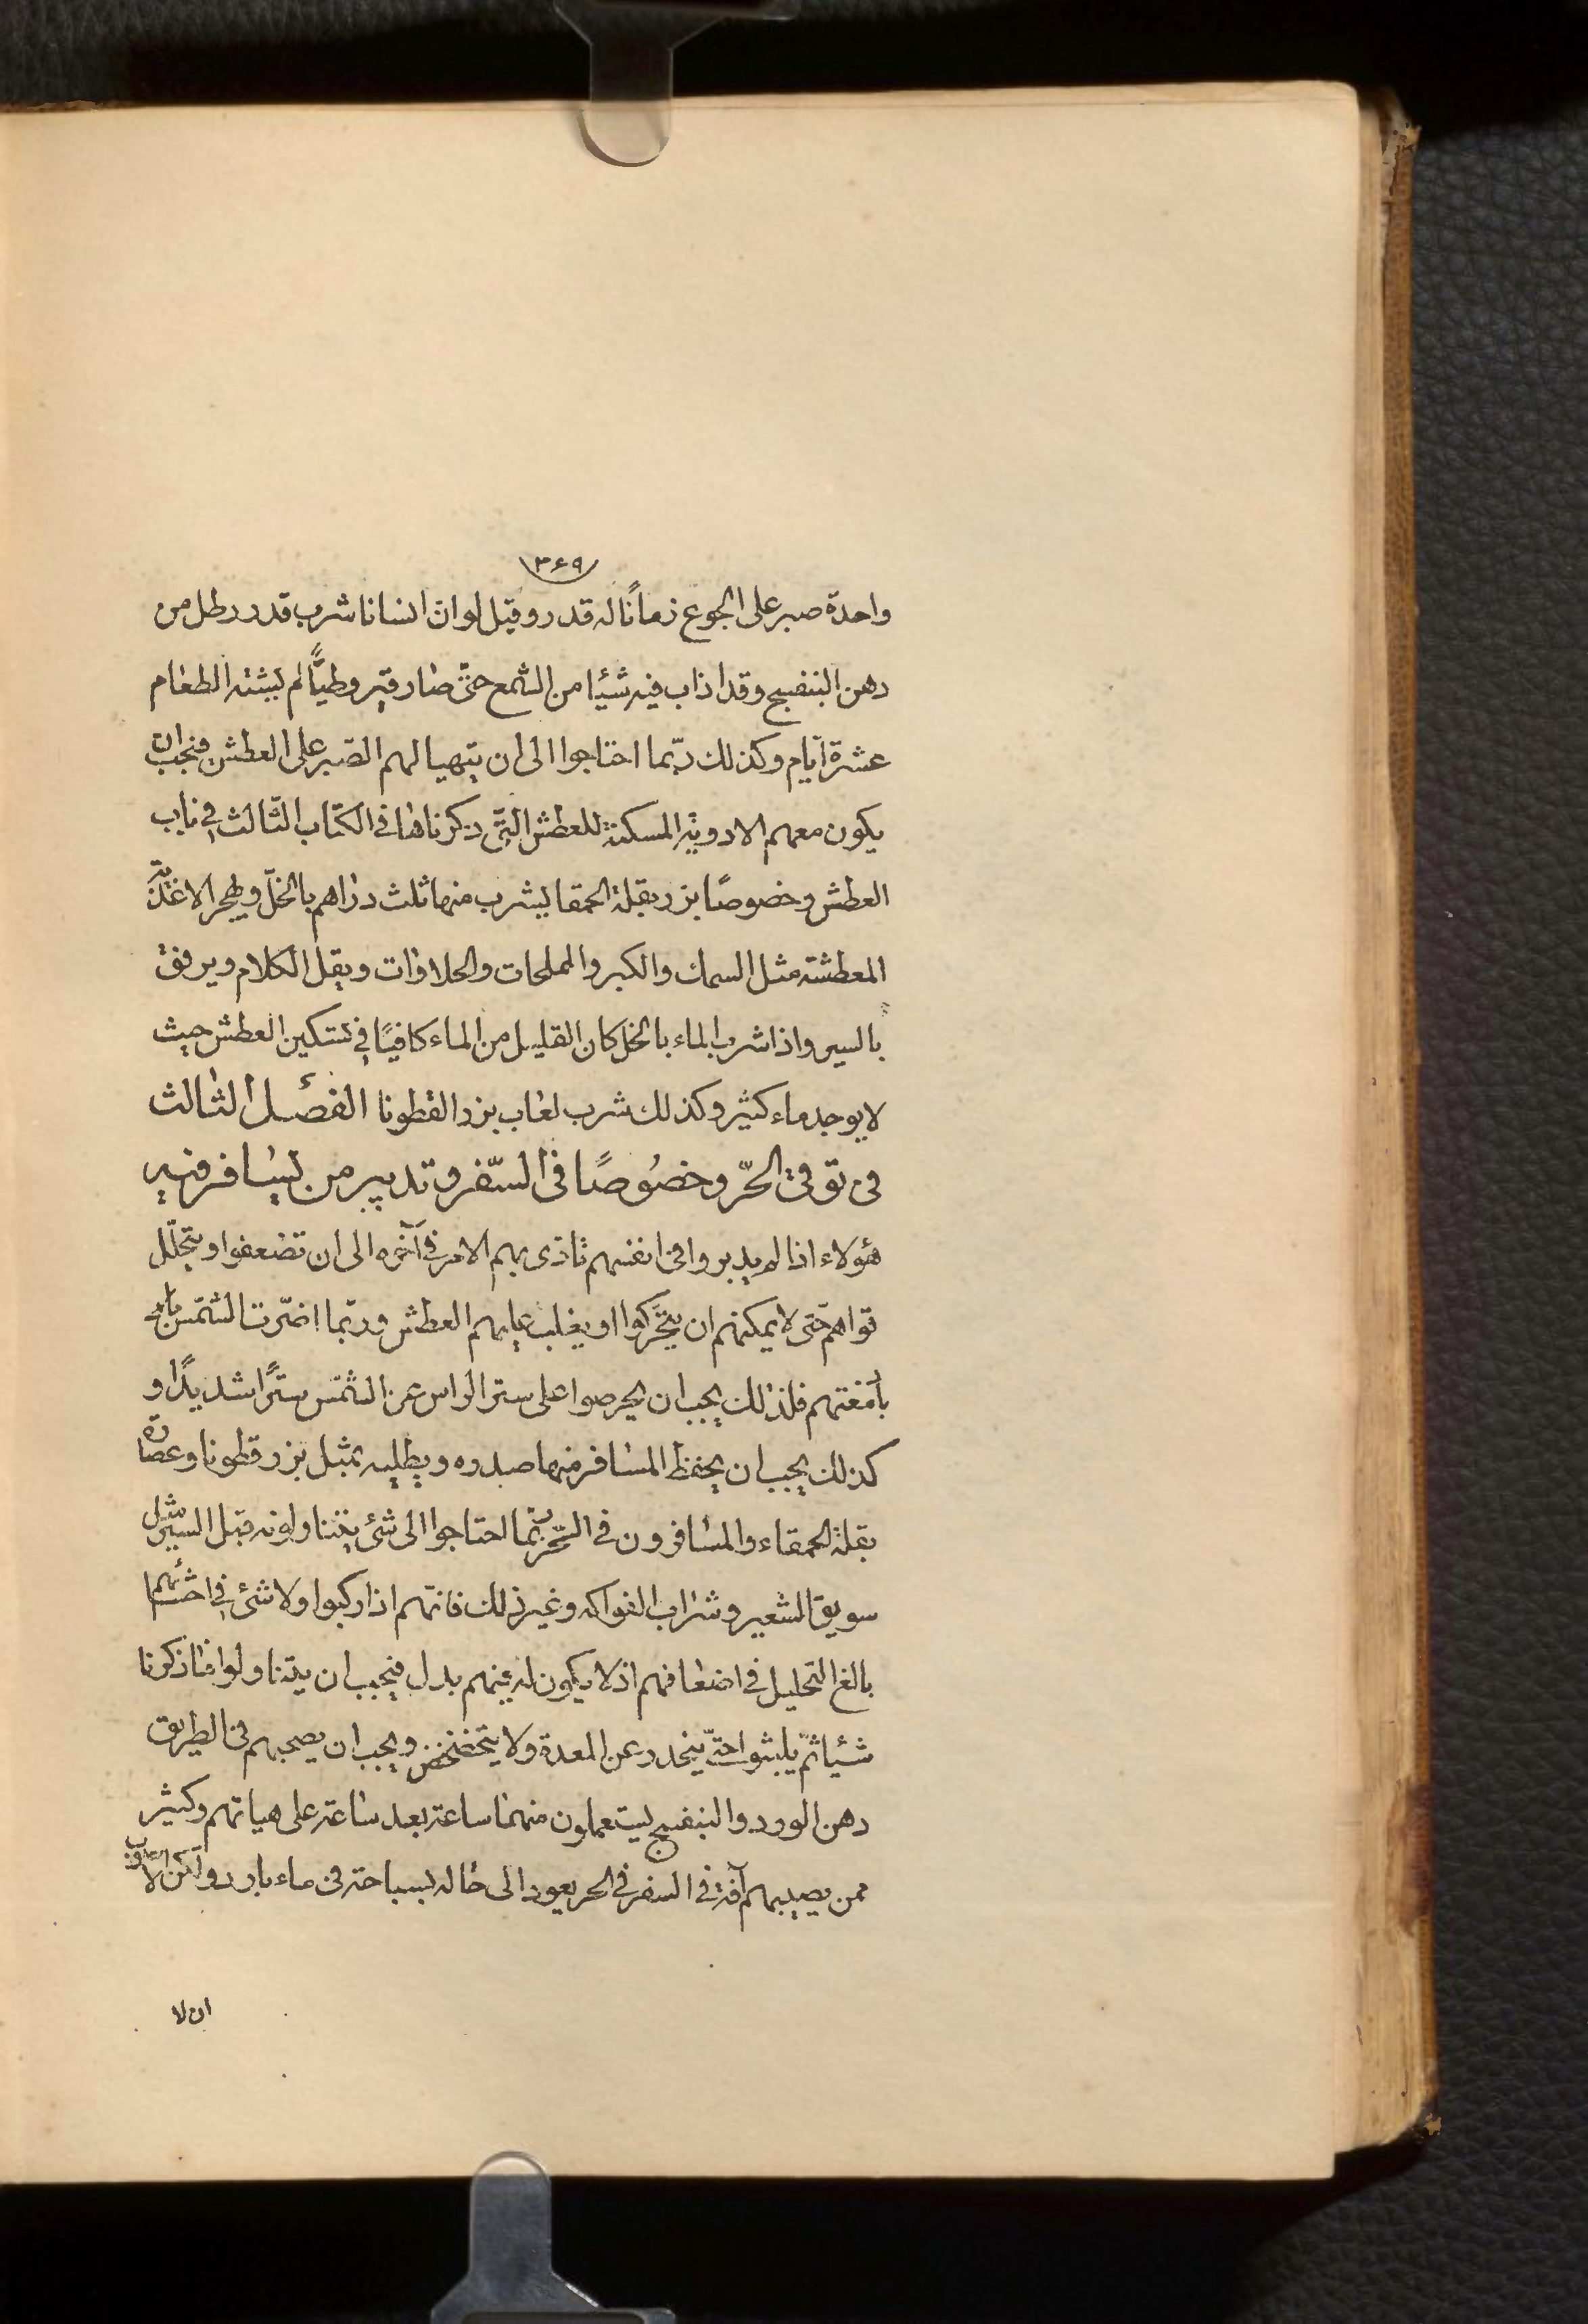 ۳۶۹
واحدة صبر على الجوع زمانًا له قدر وقيل لو انّ انسانا شرب قدر رطل من
دهن البنفسج وقد اذاب فيه شيئا من الشمع حتّى صار قيروطيًّا لم يشته الطعام
عشرة ايّام وكذلك ربّما احتاجوا الى ان يتهيا لهم الصّبر على العطش فيجب ان
يكون معهم الادوية المسكنة للعطش التى ذكرناها فى الكتاب الثّالث فى باب
العطش وخصوصًا بزر بقلة الحمقا يشرب منها ثلث دراهم بالخلّ ويهجر الاغذية
المعطشة مثل السمك والكبر والمملحات والحلاوات ويقل الكلام ويرفق
بالسير واذا شرب الماء بالخل كان القليل من الماء كافيًا فى تسكين العطش حيث
لا يوجد ماء كثير وكذلك شرب لعاب بزر القطونا الفصل الثالث
فى توقى الحّر وخصُوصًا فى السّفر وتدبير من يسافر فيه
هؤلاء اذا لم يدبروا فى انفسهم تاذى بهم الامر فى آخره الى ان تضعفوا ويتحلّل
قواهم حّتى لا يمكنهم ان يتحّركوا او يغلب عليهم العطش وربّما اضّرت الشمس
بأمغتهم فلذلك يجب ان يحرصوا على ستر الراس عن الشمس سترًا شديدًا و
كذلك يجب ان يحفظ المسافر منها صدره ويطليه بمثل بزر قطونا وعصارة
بقلة الحمقاء والمسافرون فى الحّر ربّما احتاجوا الى شئ يتناولونه قبل السير مثل
سويق الشعير وشراب الفواكه وغير ذلك فانّهم اذا ركبوا ولا شئ فى احشائهم
بالغ التحليل فى اضعافهم اذ لا يكون له عنهم بدل فيجب ان يتناولوا مما ذكرنا
شيئا ثمّ يلبثوا حتّى ينحدر عن المعدة ولا يتخضخض ويجب ان يصحبهم فى الطريق
دهن الورد والبنفسج يستعملون منهما ساعة بعد ساعة على هياتهم وكثير
ممن يصيبهم آفة فى السفر فى الحر يعود الى حاله بسباحة فى ماء بارد ولكن الاصوب
ان لا